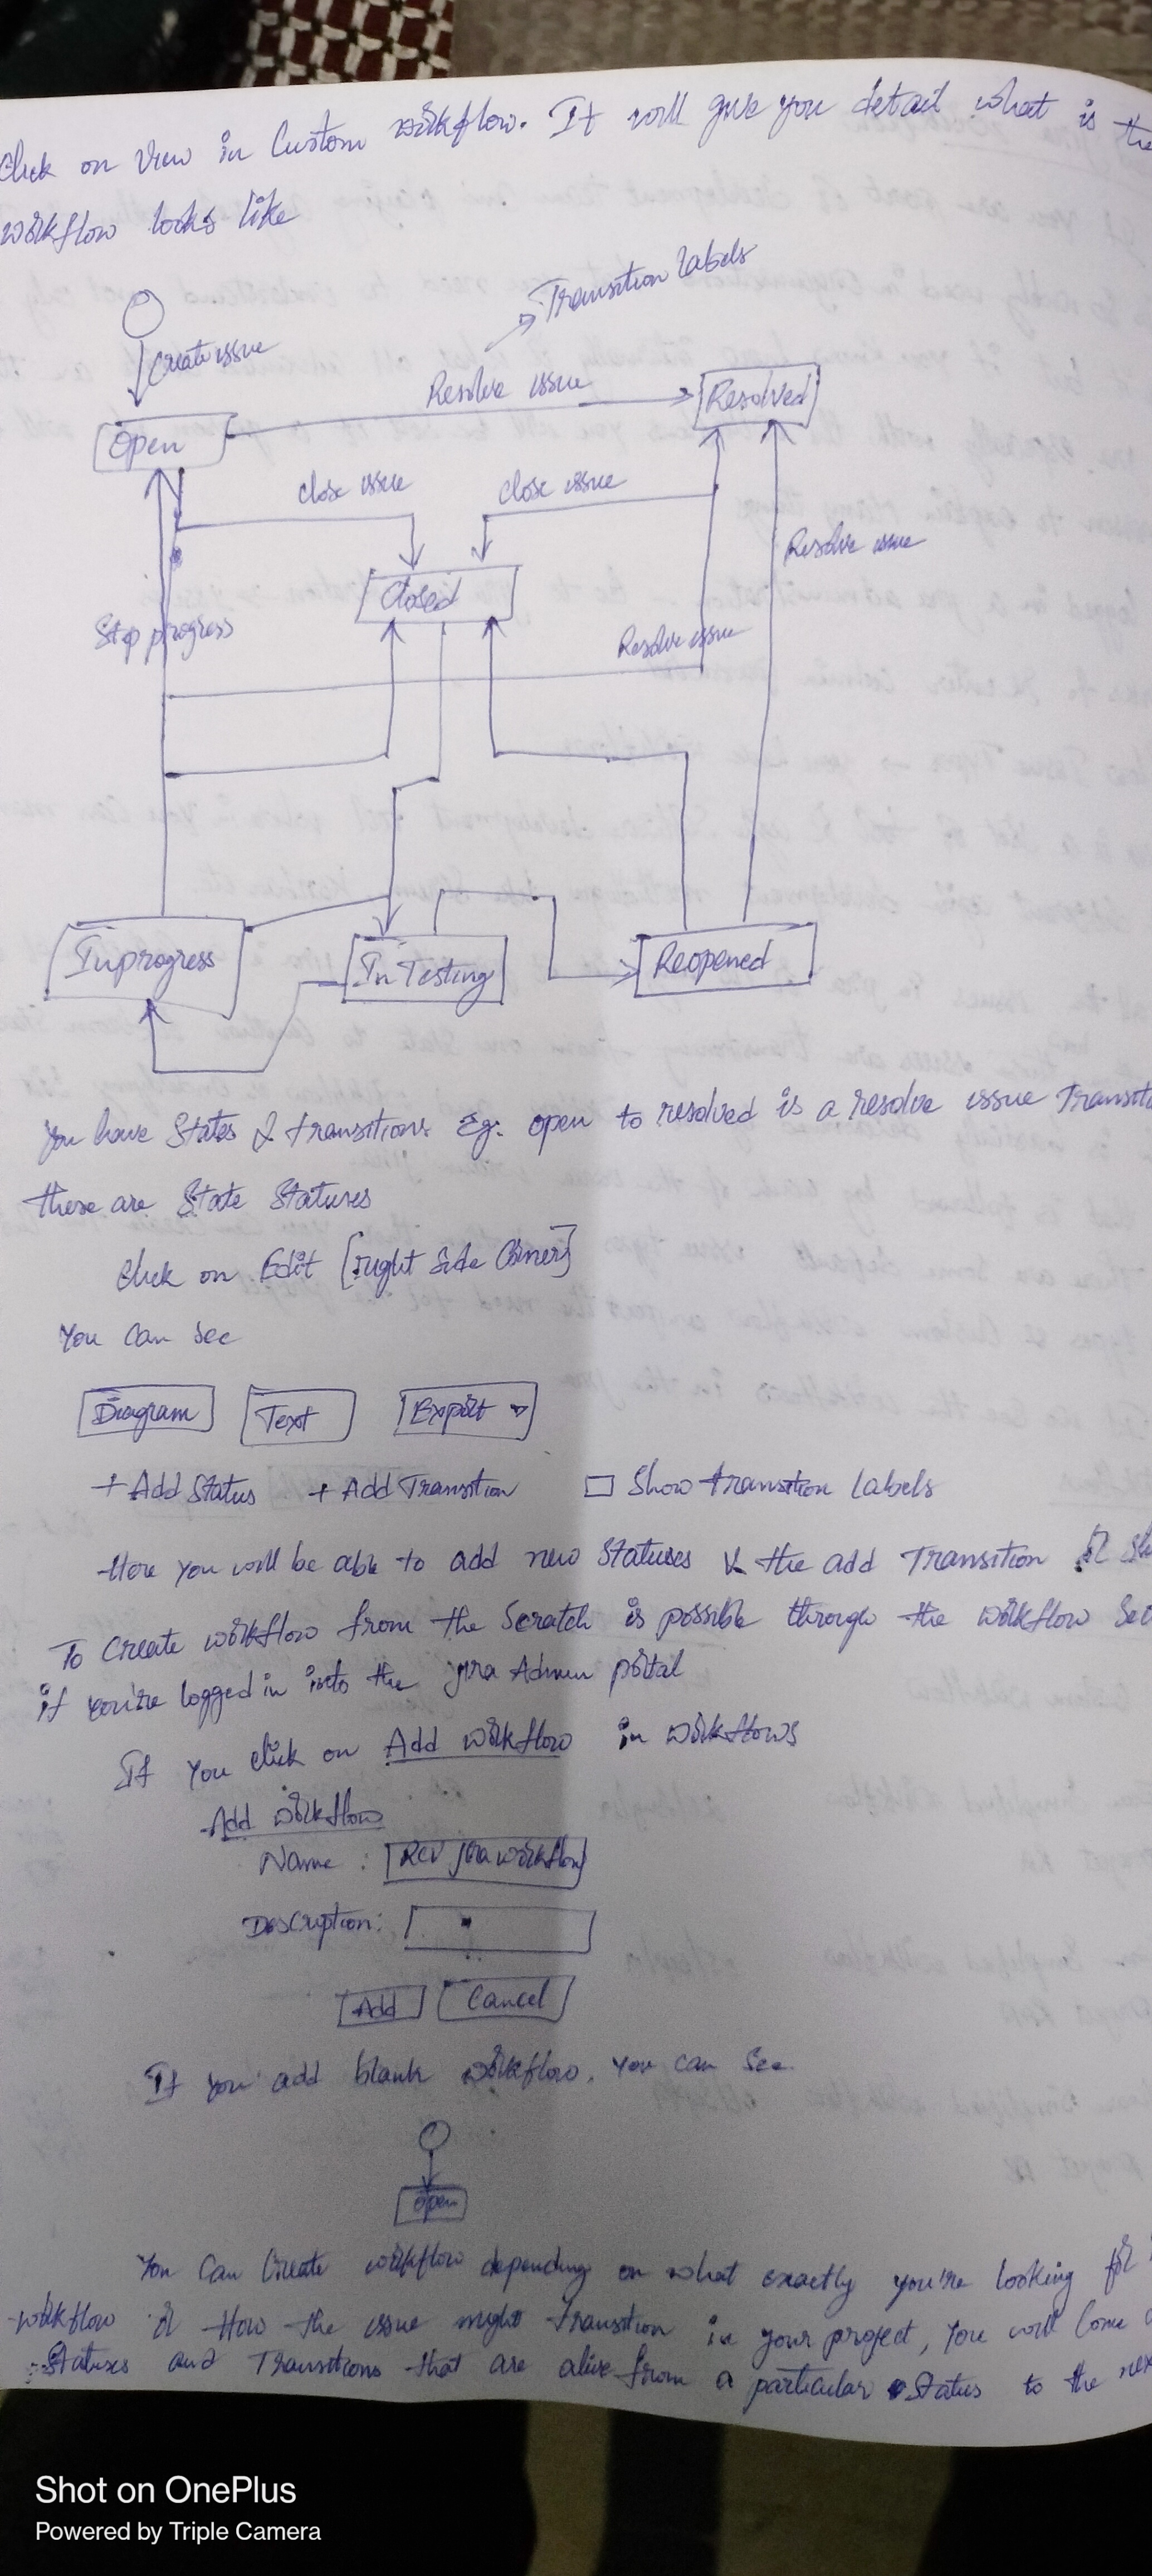 Click on View in Custom workflow. It will give you detail what is the
workflow looks like
Transition labels
Create issue
Resolve issue
Resolved
Open
Close issue
Close issue
Resolve issue
Closed
Stop progress
Resolve issue
Inprogress
In Testing
Reopened
You have States & transitions Eg: open to resolved is a resolve issue
these are State Statuses
Click on Edit [right Side Corner]
You can see
Diagram Text Export
+ Add Status + Add Transition Show transition labels
Here you will be able to add new Statuses & the add Transition
To Create workflow from the Scratch is possible through the workflow
if you're logged in into the jira Admin portal
If you click on Add workflow in workflows
Add workflow
Name : RCV Jira workflow
Description:
Add Cancel
If you add blank workflow, you can see
open
You Can Create workflow depending on what exactly you're looking for
workflow or How the issue might transition in your project, You will Come
Statuses and Transitions that are alive from a particular Status to the
Shot on OnePlus
Powered by Triple Camera